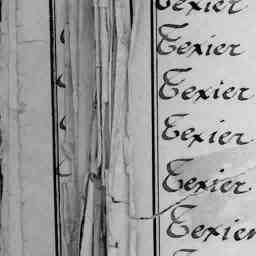 Texier
Texier
Texier
Texier
Texier
Texier